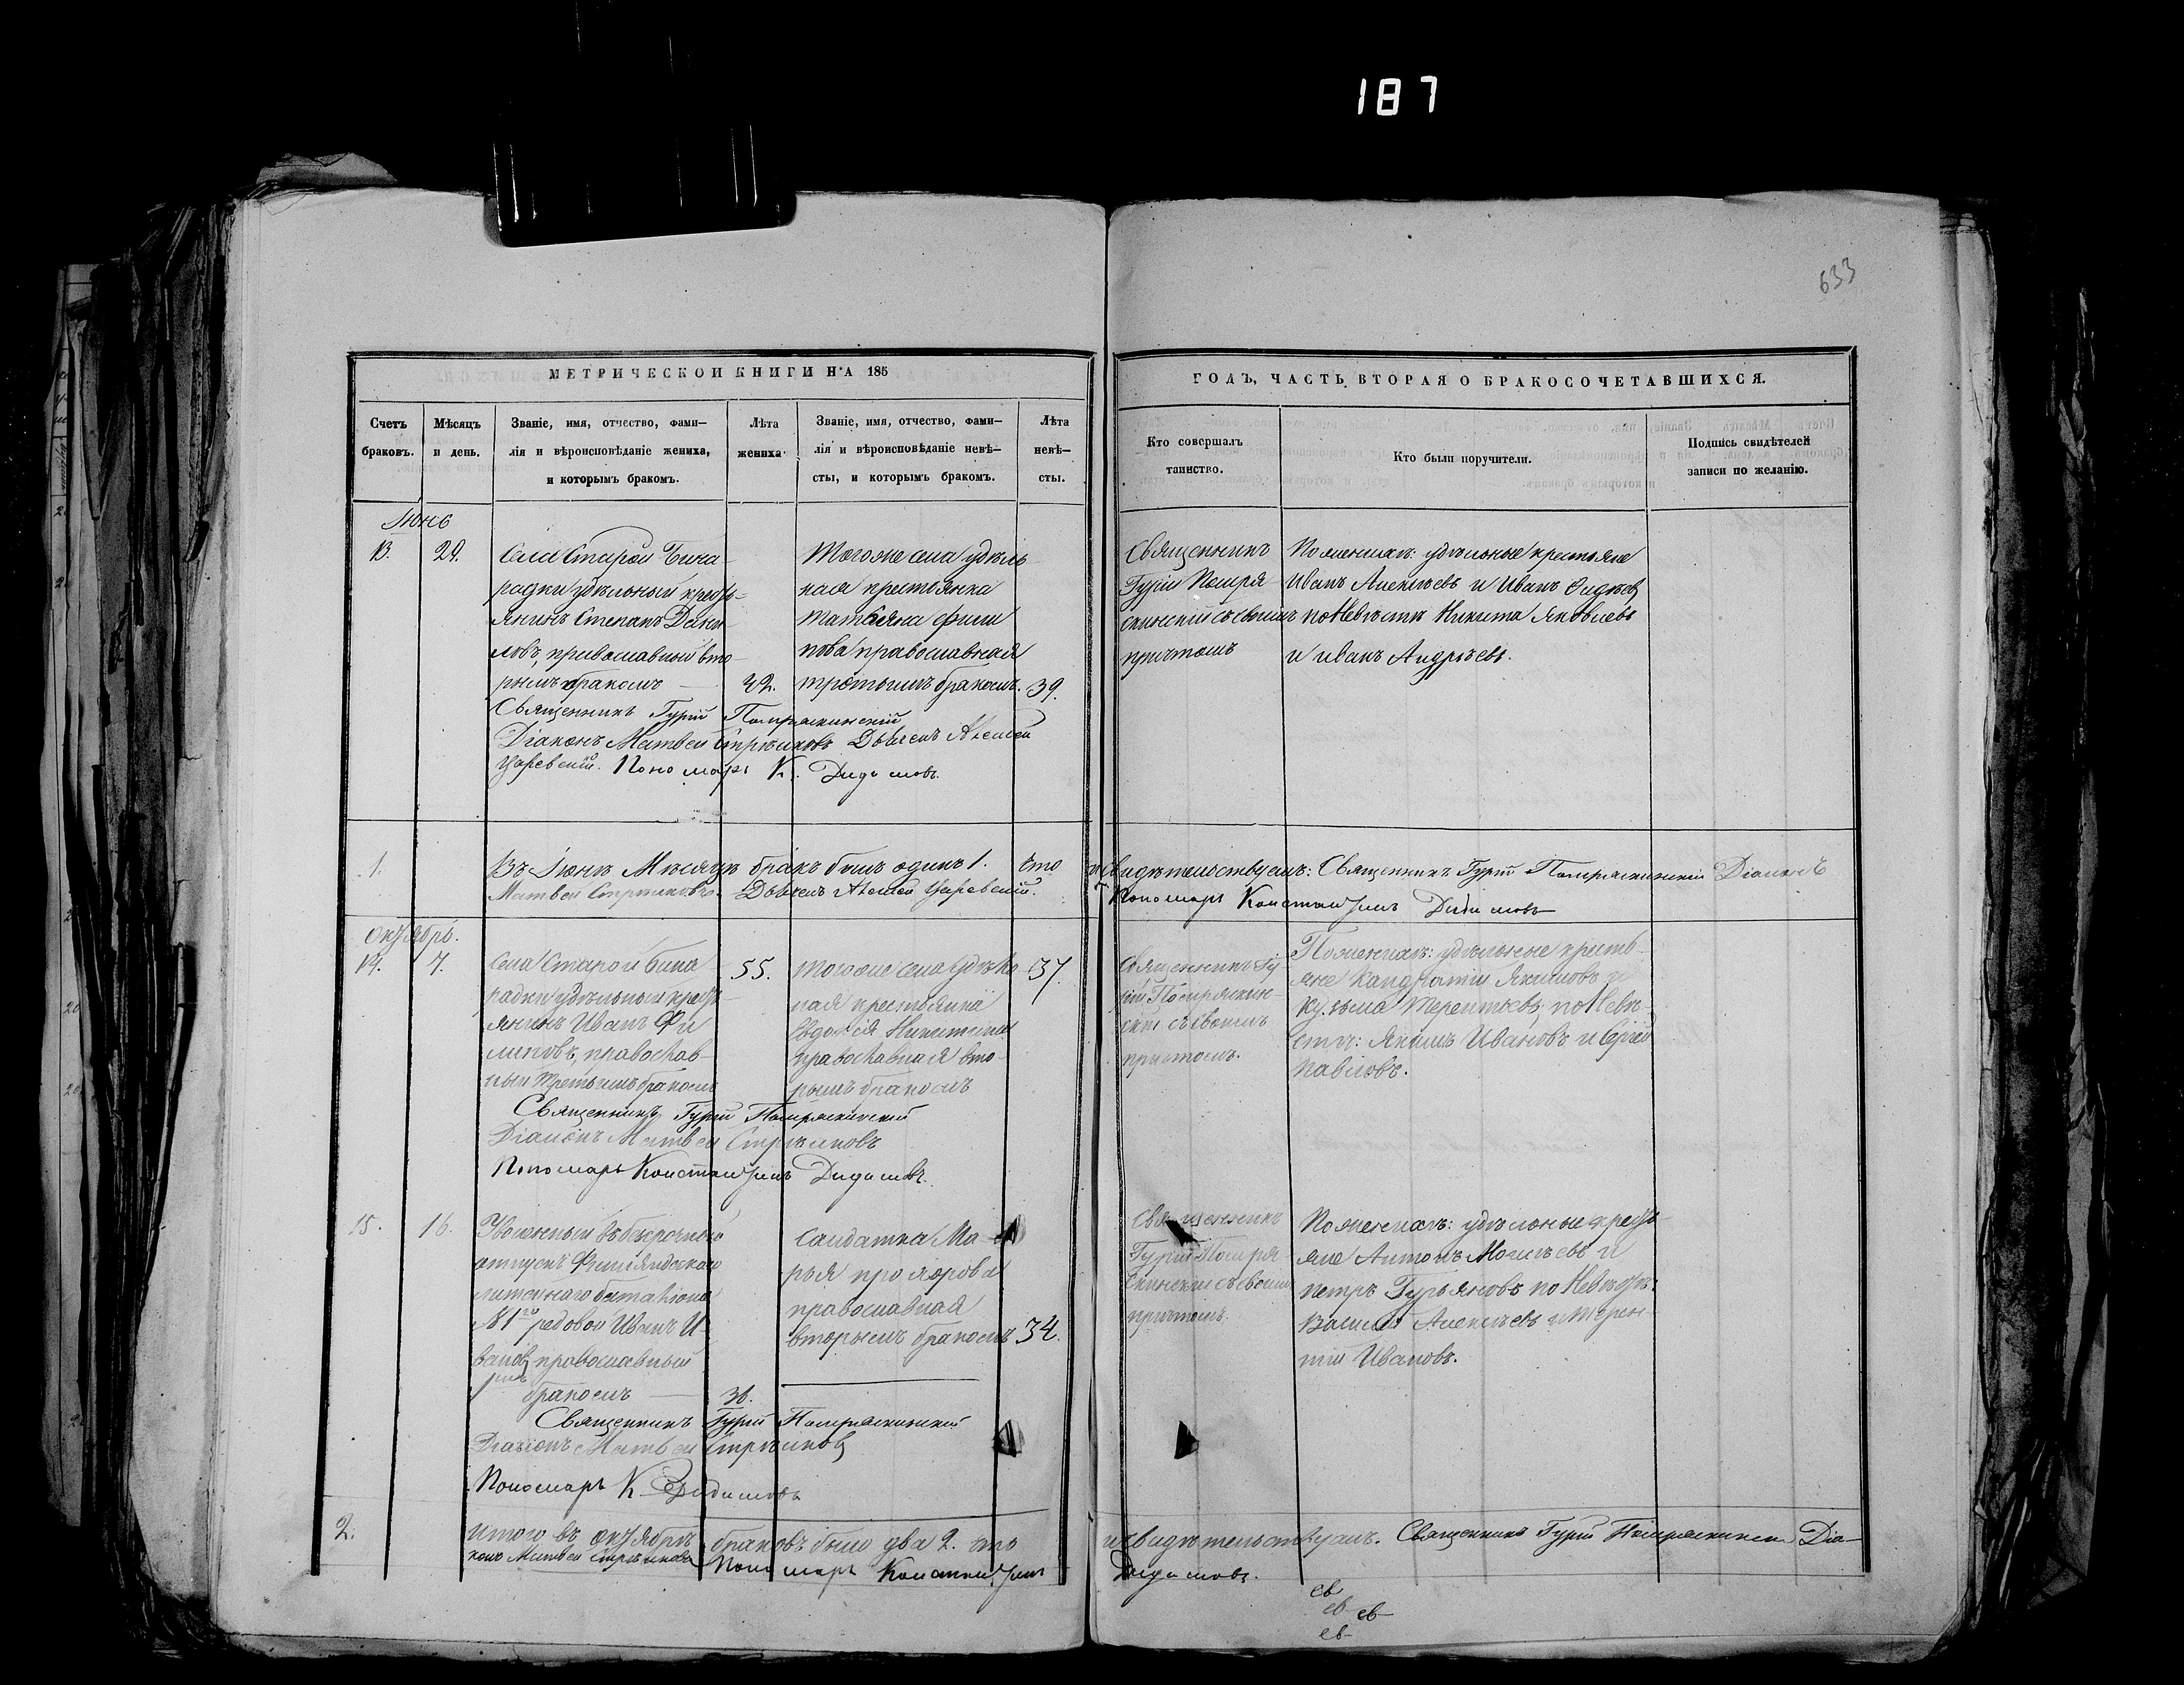 187
633
МЕТРИЧЕСКОЙ КНИГИ НА 185
ГОДЪ, ЧАСТЬ ВТОРАЯ О БРАКОСОЧЕТАВШИХСЯ.
Счетъ
браковъ.
Мѣсяцъ
и день.
Званіе, имя, отчество, фами–
лія и вѣроисповѣданіе жениха,
и которымъ бракомъ.
Лѣта
жениха.
Званіе, имя, отчество, фами–
лія и вѣроисповѣданіе невѣ–
сты, и которымъ бракомъ.
Лѣта
невѣ–
сты.
Кто совершалъ
таинство.
Кто были поручители.
Подпись свидѣтелей
записи по желанію.
Іюнь
13.
29.
Села Старой Бина
радки удѣльный кресть-
янинъ Степанъ Дани
ловъ, православный вто-
рымъ бракомъ —
42.
Тогоже села удѣль
ная крестьянка
Татьяна Фили
пова православная
третьимъ бракомъ.
39.
Священникъ
Гурій Помря
скинскій съ своимъ
причтомъ
По женихѣ: удѣльные крестьяне
Иванъ Алексѣевъ и Иванъ
по Невѣстѣ Никита Яковлевъ
и Иванъ Андреевъ.
Священникъ Гурій Помряскинскій
Діаконъ Матвей Стрѣлковъ Дьячекъ Алексей
Царевскій. Пономарь К. Дидимовъ.
1.
Въ Іюнѣ Мѣсяцѣ бракъ былъ одинъ 1. Что и Свидѣтельствуемъ: Священникъ Гурій Помряскинскій Діаконъ
Матвей Стрѣлковъ. Дьячекъ Алексей Царевскій. Пономарь Константинъ Дидимовъ
Октябрь.
14.
7.
Села Старой Бина
радки удѣльный кресть-
янинъ Иванъ Фи
липовъ, православ-
ный третьимъ бракомъ
55.
Тогоже села удѣль
ная крестьянка
Никитина
православная вто-
рымъ бракомъ
37.
Священникъ Гу
рій Помряскин-
скій съ своимъ
причтомъ.
По женихѣ: удѣльные кресть-
яне Кандратій Якимовъ и
Кузьма Терентьевъ, по Невѣ-
стѣ: Якимъ Ивановъ и Сергей
Павловъ.
Священникъ Гурій Помряскинскій
Діаконъ Матвей Стрѣлковъ
Пономарь Константинъ Дидимовъ.
15.
16.
Уволенный въ безсрочный
отпускъ Финляндскаго
баталіона
№ 1го рядовой Иванъ И-
вановъ православный
бракомъ —
36.
Салдатка Ма-
рья Прохорова
православная
вторымъ бракомъ
34.
Священникъ
Гурій Помря
скинскій съ своимъ
причтомъ.
По женихѣ: удѣльные кресть-
яне Антонъ Моисѣевъ и
Петръ Гурьяновъ по Невѣстѣ:
Василій Алексѣевъ и Терен-
тій Ивановъ.
Священникъ Гурій Помряскинскій
Діаконъ Матвей Стрѣлковъ
Пономарь К. Дидимовъ
2.
Итого въ Октябрѣ браковъ было два 2. Что и Свидѣтельствуемъ. Священникъ Гурій Помряскинскій Діа-
конъ Матвей Стрѣлковъ Пономарь Константинъ Дидимовъ.
ев
ев– ев–
ев–